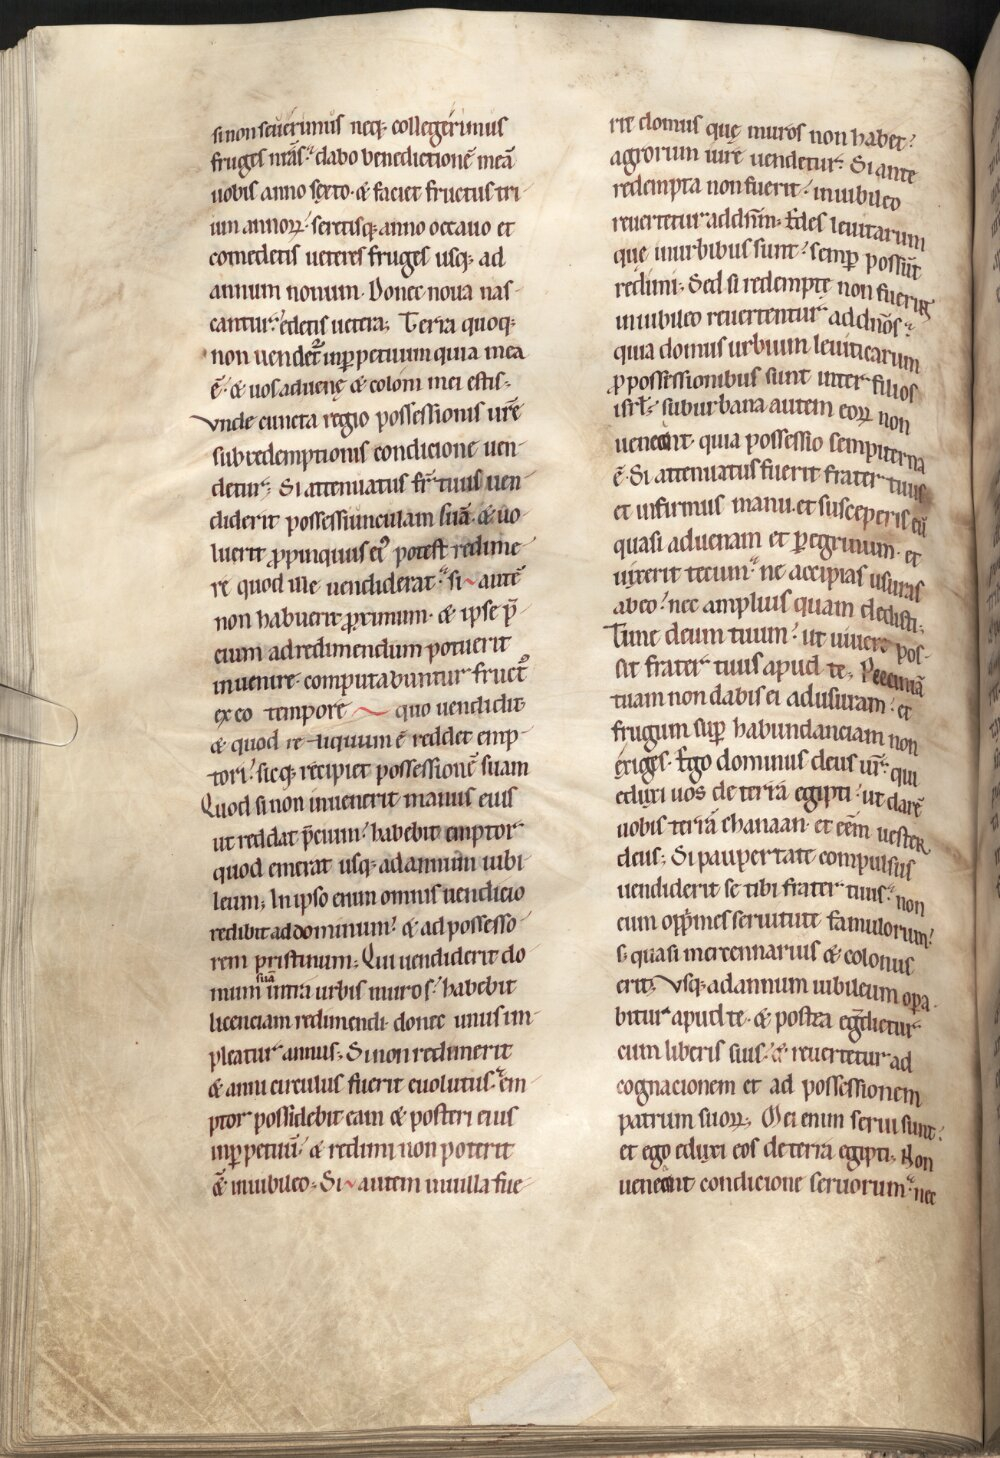 si non seuerimus neq; collegerimus
fruges nr̄as? dabo benedictionē meā
uobis anno sexto · & faciet fructus tri-
um annorꝝ · seretisq; anno octauo et
comedetis ueteres fruges usq; ad
annum nonum · Donec noua nas-
cantur? edetis uetera; Terra quoq;
non uendet᷑ inꝑpetuum quia mea
ē · & uos aduenę & coloni mei estis;
Vnde cuncta regio possessionis ur̄e
sub redemptionis condicione uen-
detur; Si attenuatus fr̄ tuus uen-
diderit possessiunculam suā · & uo-
luerit ꝓpinquus eiꝰ potest redime-
re quod ille uendiderat? si autē
non habuerit ꝓximum · & ipse p̄-
cium ad redimendum potuerit
inuenire · computabuntur fruct᷑
ex eo tempore quo uendidit·
& quod reliquum ē reddet emp-
tori? sicq; recipiet possessionē suam
Quod si non inuenerit manus eius
ut reddat p̄cium? habebit emptor
quod emerat usq; ad annum iubi-
leum; In ipso enim omnis uendicio
redibit ad dominum? & ad possesso-
rem pristinum; Qui uendiderit do-
mum suā intra urbis muros? habebit
licenciam redimendi · donec unus im-
pleatur annus; Si non redimerit
& anni circulus fuerit euolutus? em-
ptor possidebit eam & posteri eius
inꝑpetuū? & redimi non poterit
&̄ in iubileo; Si autem in uilla fue-
rit domus quę muros non habet?
agrorum iure uendetur? Si ante
redempta non fuerit? in iubileo
reuertetur ad dn̄m; Ędes leuitarum
que in urbibus sunt? semꝑ possūt
redimi; Sed si redemptę non fuerint
in iubileo reuertentur ad dn̄os?
quia domus urbium leuiticarum
ꝓ possessionibus sunt inter filios
isrl̄? suburbana autem eorꝝ non
ueneant · quia possessio sempiterna
ē · Si attenuatus fuerit frater tuus
et infirmus manu · et susceperis eū
quasi aduenam et ꝑegrinum · et
uixerit tecum? ne accipias usuras
ab eo? nec amplius quam dedisti;
Time deum tuum? ut uiuere pos-
sit frater tuus apud te; Pecuniā
tuam non dabis ei ad usuram? et
frugum suꝑ habundanciam non
exiges · Ego dominus deus ur̄? qui
eduxi uos de terra egipti? ut darē
uobis terrā chanaan · et eēm uester
deus; Si paupertate compulsus
uendiderit se tibi frater tuus? non
eum opp̄mes seruitute famulorum?
s; quasi mercennarius & colonus
erit; Vsq; ad annum iubileum opera-
bitur apud te · & postea eḡdietur
cum liberis suis? & reuertetur ad
cognacionem et ad possessionem
patrum suorꝝ; Mei enim serui sunt?
et ego eduxi eos de terra egipti; Non
ueneant condicione seruorum? nec